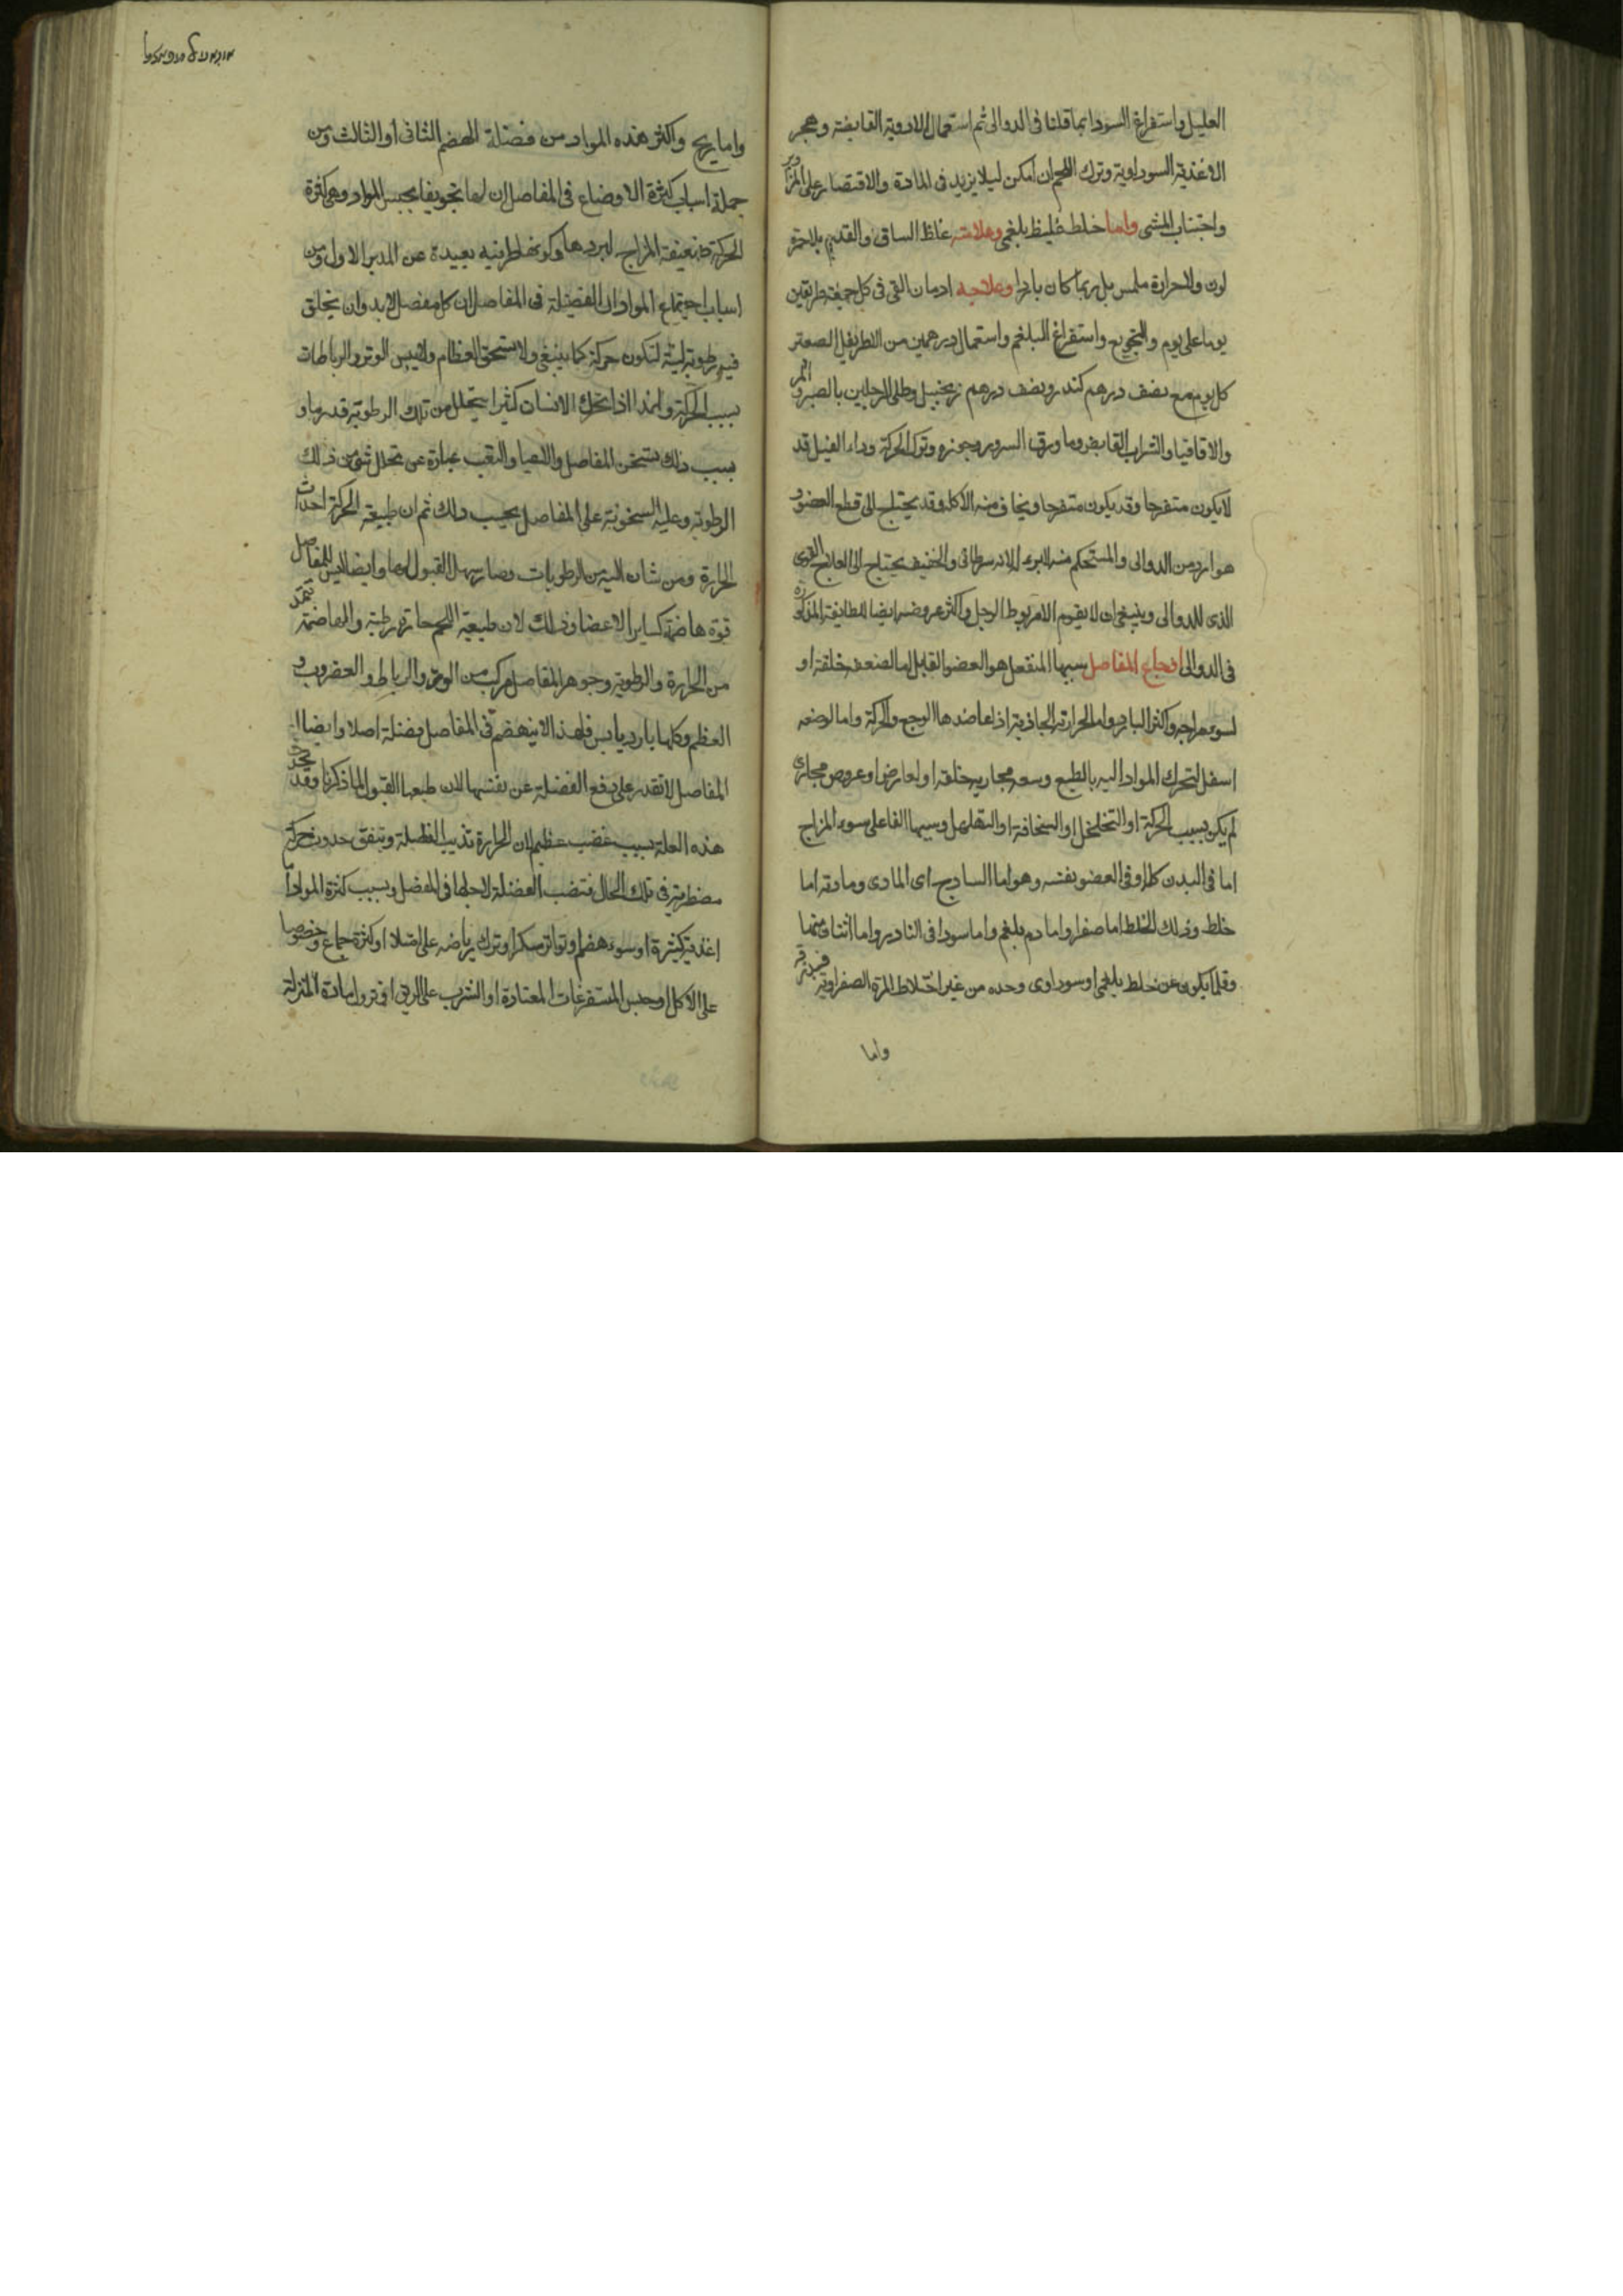 العليل واستفراغ السودا بما قلنا فى الدوالى ثم استعمال الادوية القابضة وهجر
الاغذية السوداوية وترك اللحم ان امكن ليلا يزيد فى المادة والاقتصار على المزاور
واجتناب المشى واما خلط غليظ بلغمى وعلامته غلظ الساق والقدم بلا حمرة
لون ولا حرارة ملمس بل ربما كان باردا وعلاجه ادمان القى فى كل جمعة طريقين
يوما على يوم والتجويع واستفراغ البلغم واستعمال درهمين من الاطريفل الصغير
كل يوم مع نصف درهم كندر ونصف درهم زنجبيل وطلى الرجلين بالصبر والمر
والاقاقيا والشراب القابض وما ورق السرو وجوزه وترك الحركة وداء الفيل قد
لا يكون متقرحا وقد يكون متقرحا ويخاف منه الاكلة وقد يحتاج الى قطع العضو و
هو اردى من الدوالى والمستحكم منه لا يبرء الا انه سرطانى والخفيف يحتاج الى العلاج القوى
الذى للدوالى وينبغى ان لا يقوم الا مربوط الرجل واكثر عروضه ايضا للطايفة المذكورة
فى الدوالى اوجاع المفاصل سببها المنفعل هو العضو القابل اما لضعف خلقة او
لسوء مزاجه واكثره البارد واما الحرارته الجاذبة اذا عاضدها الوجع والحركة واما لوضعه
اسفل لتحرك المواد اليه بالطبع وسعة مجاريه خلقة او لعارض او عروض مجارى
لم يكن بسبب الحركة او التخلخل او السخافة او التهلهل وسببها الفاعلى سوء المزاج
اما فى البدن كله او فى العضو نفسه وهو اما الساذج اى المادى ومادته اما
خلط وذلك الخلط اما صفرا واما دم بلغم واما سودا فى النادر واما اثنان منها
وقلما يكون عن خلط بلغمى او سوداوى وحده من غير اختلاط المرة الصفراوية
واما
واما ريح واكثر هذه المواد من فضلة الهضم الثانى او الثالث ومن
جملة اسباب كثرة الاوضاع فى المفاصل ان لها تجويفا يحبس المواد وهى كثرة
الحركة ضعيفة المزاج لبردها وكونها طرفيه بعيدة عن المدبر الاول ومن
اسباب اجتماع المواد الفضلة فى المفاصل ان كل مفصل لابد وان يخلق
فيه رطوبة لينة لتكون حركة كما ينبغى ولا تستحق العظام ولا تيبس الوتر والرباطات
بسبب الحركة ولهذا اذا تحرك الانسان كثيرا يتحلل من تلك الرطوبة قدر ما و
بسبب ذلك تسخن المفاصل والاعيا والتعب عبارة عن تحلل شى من ذلك
الرطوبة وغلبة السخونة على المفاصل بحسب ذلك ثم ان طبيعة الحركة احداث
الحرارة ومن شان الرطوبات وصار سهل القبول لها وايضا ليس للمفاصل
قوة هاضمة كساير الاعضا وذلك لان طبيعة اللحم حارة رطبة والهاضمة تتم
من الحرارة والرطوبة وجوهر المفاصل مركب من الوتر والرباط والغضروف و
العظم وكلها بارد يابس فلهذا لا ينهضم فى المفاصل فضلة اصلا وايضا ا
المفاصل لا تقدر على دفع الفضلة عن نفسها لان طبعها القبول لما ذكرنا وقد تحدث
هذه العلة بسبب غضب عظيم لان الحرارة تذيب الفضلة ويتفق حدوث حركة
مضطربة فى تلك الحال فتنصب الفضلة لاجلها فى المفصل وبسبب كثرة المواد اما
اغذية كثيرة او سوء هضم او تواتر سكر او ترك رياضة على امتلا او كثرة جماع وخصوصا
على الاكل او حبس المستفرغات المعتادة او الشرب على الريق او مادة المنزلة